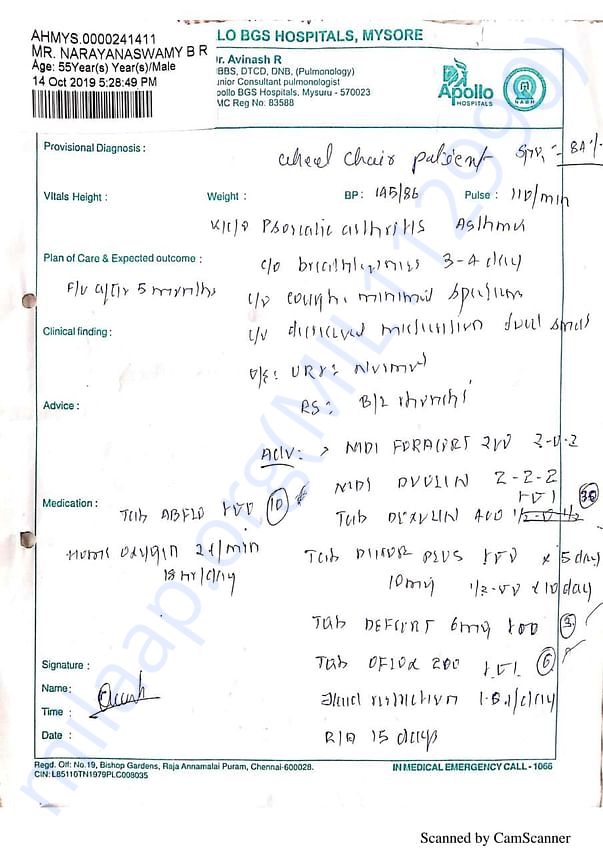 AHMYS.0000241411
MR. NARAYANASWAMY B R
Age: 55Year(s) Year(s)/Male
14 Oct 2019 5:28:49 PM
LO BGS HOSPITALS, MYSORE
r. Avinash R
BBS, DTCD, DNB, (Pulmonology)
nior Consultant pulmonologist
pollo BGS Hospitals, Mysuru - 570023
MC Reg No: 83588
Apollo
HOSPITALS
NABH
Provisional Diagnosis :
wheel chair patient 84%
Vitals Height : Weight : BP: 145/86 Pulse : 110/min
K/c/o Psoriatic arthritis Asthma
Plan of Care & Expected outcome :
c/o breathlessness 3-4 day
F/U after 5 months
c/o cough, minimal sputum
Clinical finding :
c/o
O/E: URT: Normal
RS: B/L rhonchi
Advice :
Adv: > MDI FORACORT 200 2-0-2
MDI DUOLIN 2-2-2
Medication :
Tab ABFLO 100 10
1-0-1 30
Tab 400
Home oxygen 2L/min
18 hr/day
Tab PLUS x 5 day
10mg 1/2-0-0 x 10 day
Tab DEFCORT 6mg 3
Signature :
Tab OFLOX 200 1-0-1 6
Name:
Fluid restriction /day
Time :
Date :
R/A 15 days
Regd. Off: No.19, Bishop Gardens, Raja Annamalai Puram, Chennai-600028.
CIN: L85110TN1979PLC008035
IN MEDICAL EMERGENCY CALL - 1066
milaap.org(MIL112990)
Scanned by CamScanner